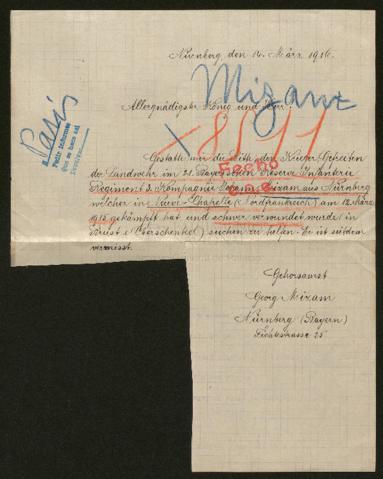 Nürnberg, den 14. März 1916.
Mizam
Allergnädigster König und Herr!
Paris
8511
Gestatte mir die Bitte den Krieger Gefreiten
der Landwehr im 21. Bayerischen Reserve Infanterie
Regiment 3. Kompagnie Johann Mizam aus Nürnberg
welcher in Neuve-Chapelle (Nordfrankreich) am 12. März
1915 gekämpft hat und schwer verwundet wurde (in
Brust & Oberschenkel) suchen zu lassen. Er ist seitdem
vermisst.
Gehorsamst
Georg Mizam
Nürnberg (Bayern)
Fichtestrasse 25